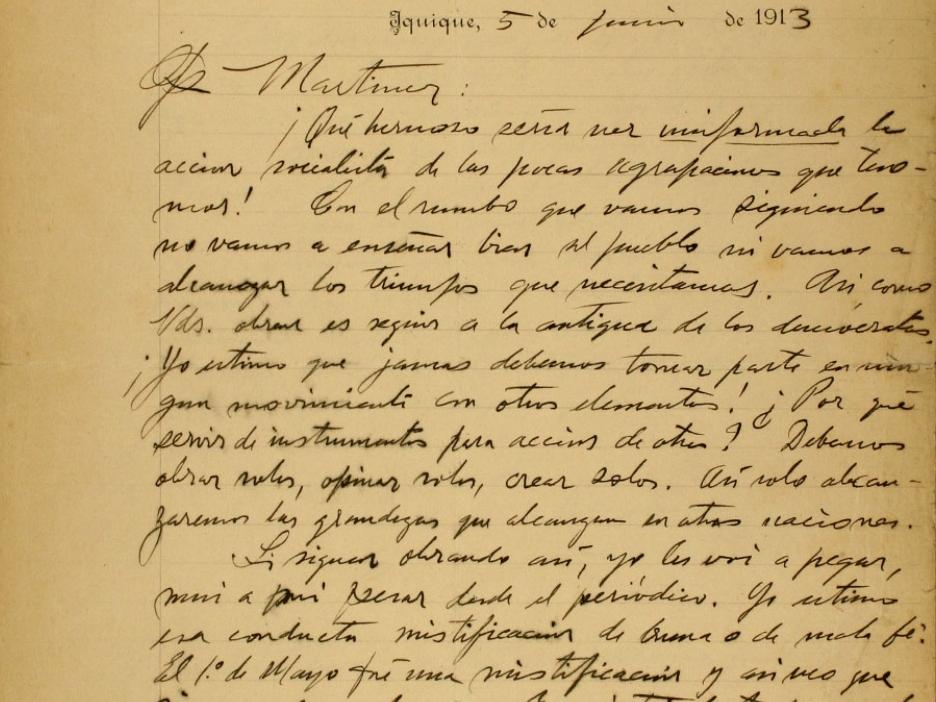 Iquique, 5 de junio de 1913
Martinez:
¡Qué hermoso seria ver uniformada la
accion socialista de las pocas agrupaciones que tene-
mos! Con el rumbo que vamos siguiendo
no vamos a enseñar bien al pueblo ni vamos a
alcanzar los triunfos que necesitamos. Asi como
Vds. obran es seguir a la antigua de los demócratas.
¡Yo estimo que jamas debemos tomar parte en nin-
gun movimiento con otros elementos! ¿Por qué
servir de instrumentos para accion de otros? Debemos
obrar solos, opinar solos, crear solos. Asi solo alcan-
zaremos las grandezas que alcanzan en otras naciones.
Si siguen obrando asi, yo les voi a pegar,
mui a mi pesar desde el periódico. Yo estimo
esa conducta mistificacion de buena o de mala fé.
El 1º de Mayo fué una mistificacion y asi veo que